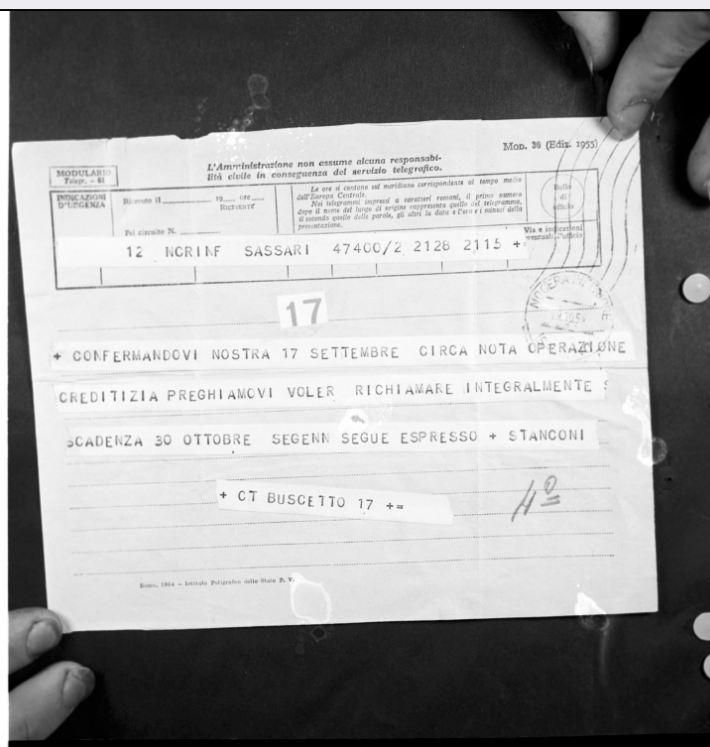 MODULARIO
Telegr. - 61
L'Amministrazione non assume alcuna responsabi-
lità civile in conseguenza del servizio telegrafico.
Mod. 30 (Ediz. 1955)
INDICAZIONI
D'URGENZA
Ricevuto il 19 ore
RICEVENTE
Pel circuito N.
Le ore si contano sul meridiano corrispondente al tempo medio
dell'Europa Centrale.
Nei telegrammi impressi a caratteri romani, il primo numero
dopo il nome del luogo di origine rappresenta quello del telegramma,
il secondo quello delle parole, gli altri la data e l'ora e i minuti della
presentazione.
Bollo
di
ufficio
Via e indicazioni
eventuali d'ufficio
12 NCRINF SASSARI 47400/2 2128 2115 +=
17
+ CONFERMANDOVI NOSTRA 17 SETTEMBRE CIRCA NOTA OPERAZIONE
CREDITIZIA PREGHIAMOVI VOLER RICHIAMARE INTEGRALMENTE S
SCADENZA 30 OTTOBRE SEGENN SEGUE ESPRESSO + STANCONI
+ CT BUSCETTO 17 +=
Roma, 1954 - Istituto Poligrafico dello Stato P. V.